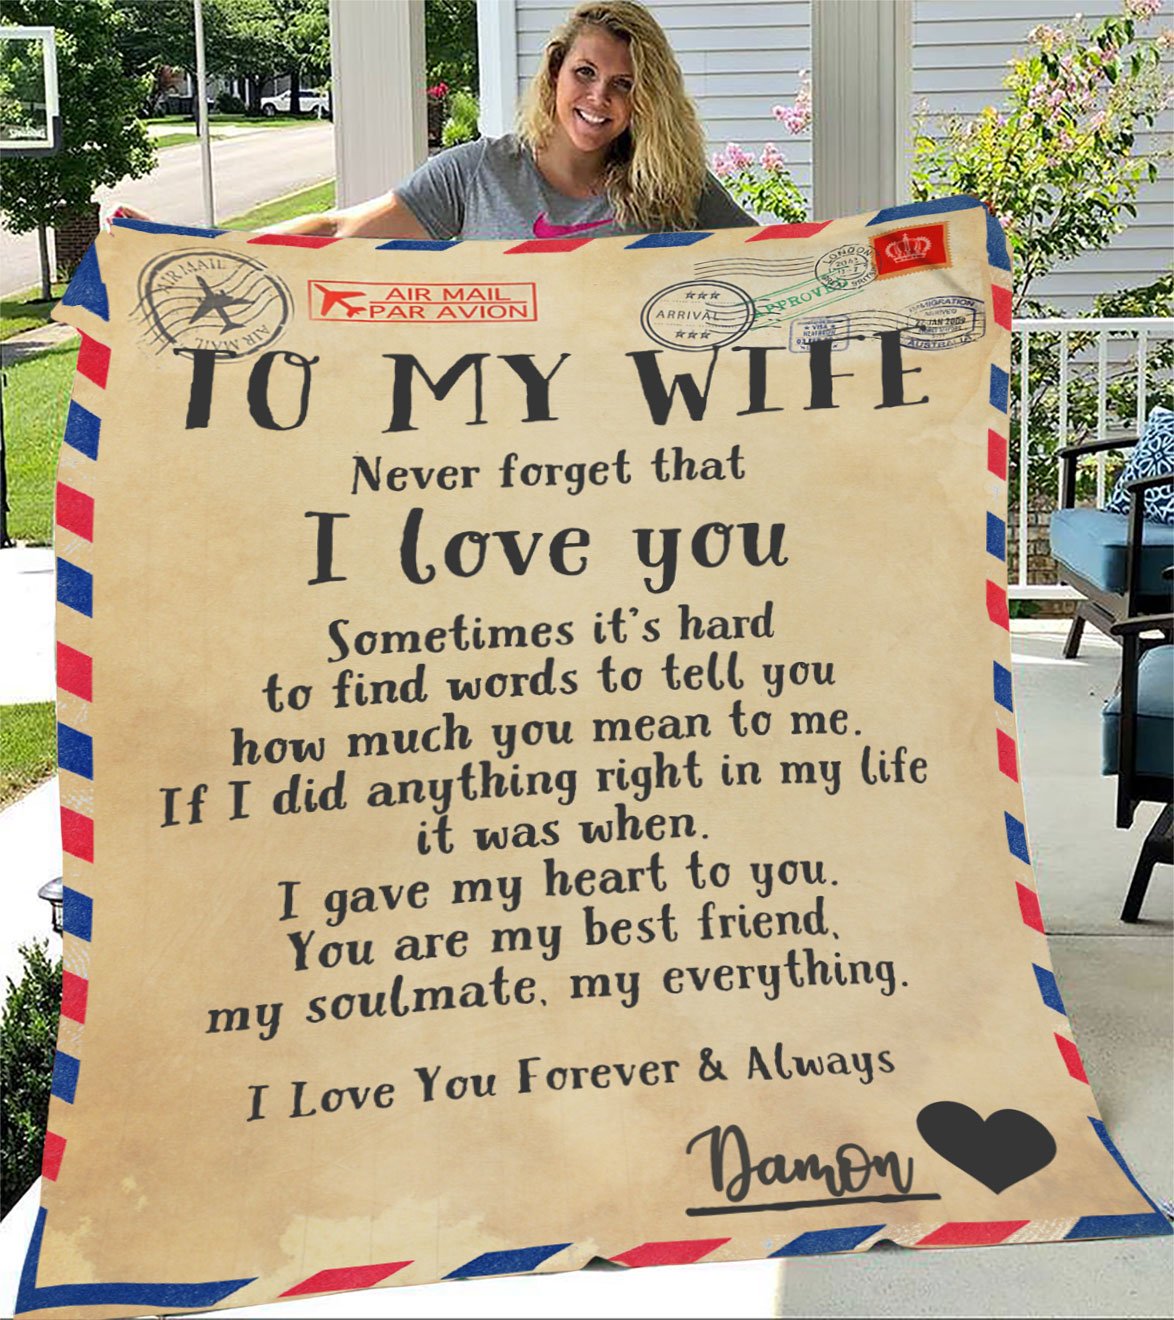 AIR MAIL
AIR MAIL
AIR MAIL
PAR AVION
ARRIVAL
APPROVED
LONDON
IMMIGRATION
22 JAN 2009
AUSTRALIA
VISA
TO MY WIFE
Never forget that
I love you
Sometimes it's hard
to find words to tell you
how much you mean to me.
If I did anything right in my life
it was when.
I gave my heart to you.
You are my best friend,
my soulmate, my everything.
I Love You Forever & Always
Damon